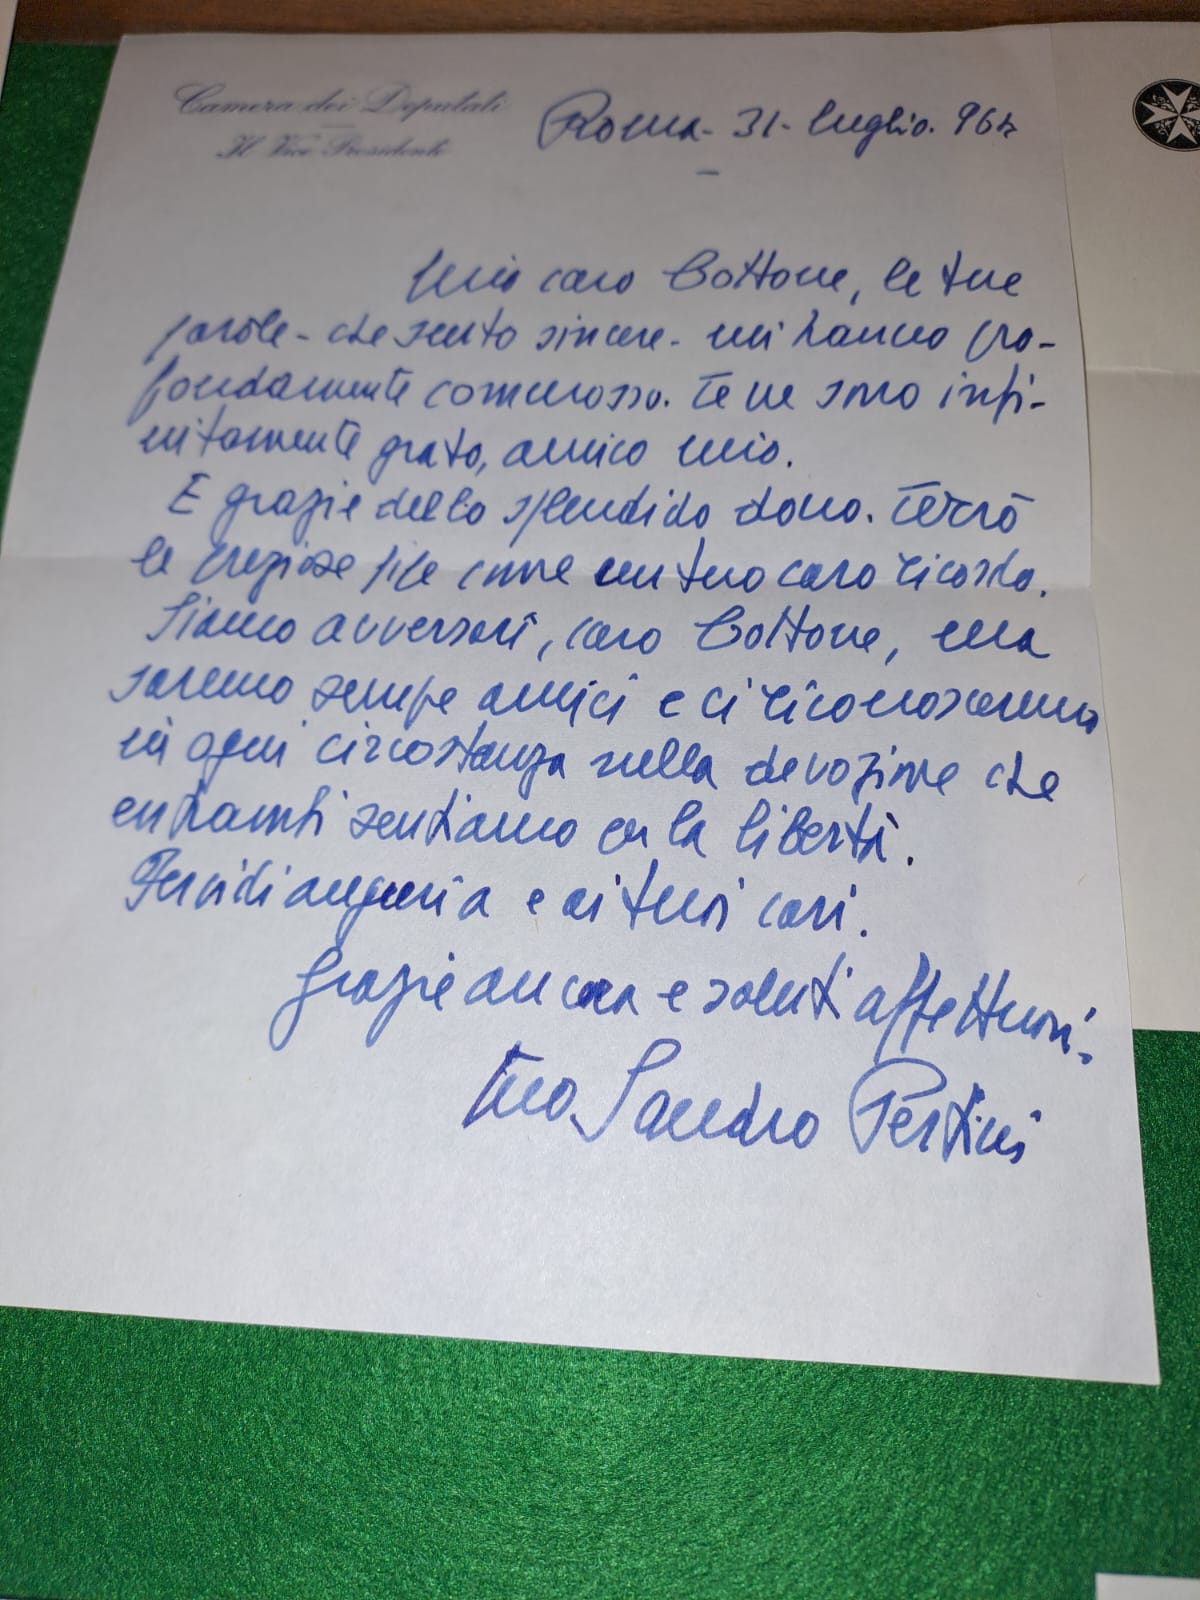 Camera dei Deputati
Il Vice Presidente
Roma - 31 - luglio. 964
Mio caro Cottone, le tue
parole - che sento sincere - mi hanno pro-
fondamente commosso. Te ne sono infi-
nitamente grato, amico mio.
E grazie dello splendido dono. Terrò
le preziose pipe come un tuo caro ricordo.
Siamo avversari, caro Cottone, ma
saremo sempre amici e ci riconosceremo
in ogni circostanza nella devozione che
entrambi sentiamo per la libertà.
Fervidi auguri a e ai tuoi cari.
Grazie ancora e saluti affettuosi.
Tuo Sandro Pertini